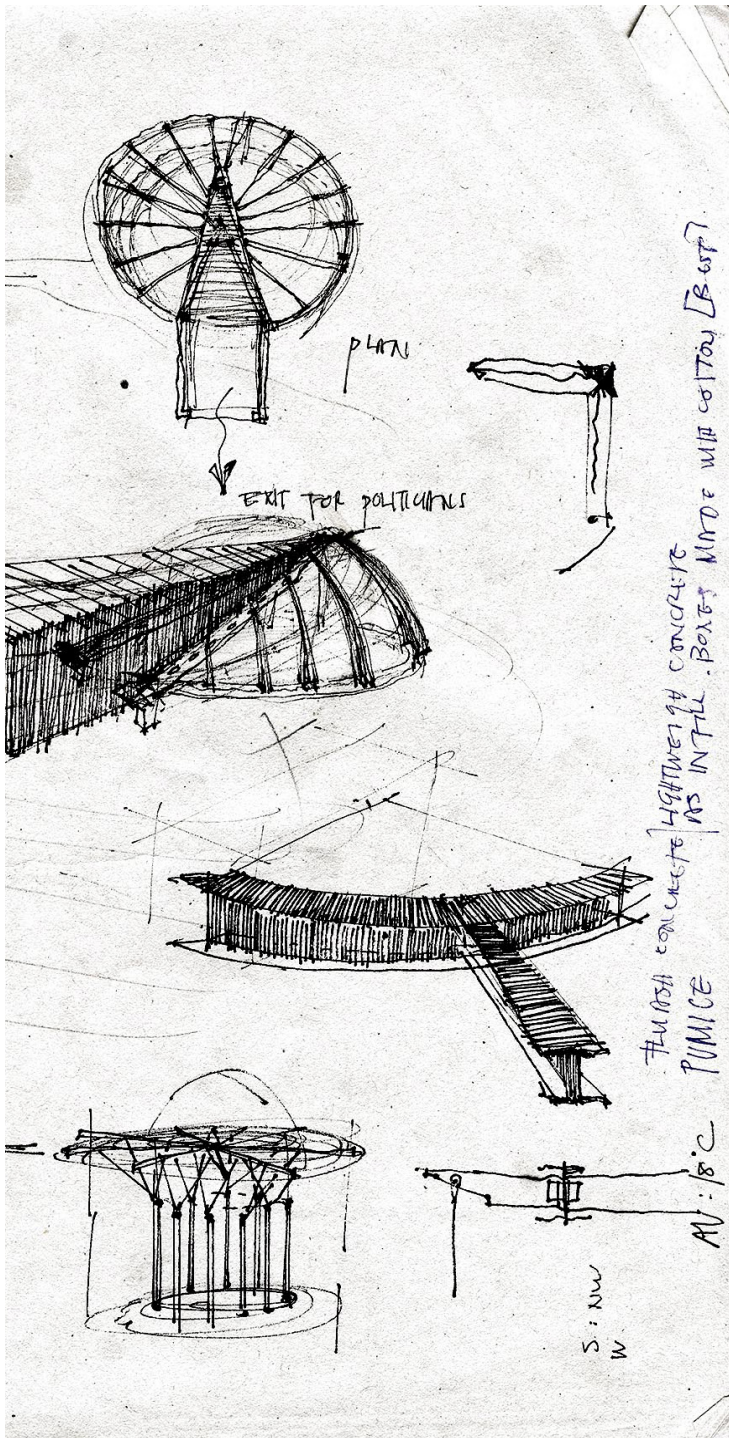 PLAN
EXIT FOR POLITICIANS
FLYASH CONCRETE / LIGHTWEIGH CONCRETE
PUMICE AS INFILL. BOXES MADE WITH COTTON
AV: 18°C
S: NW
W